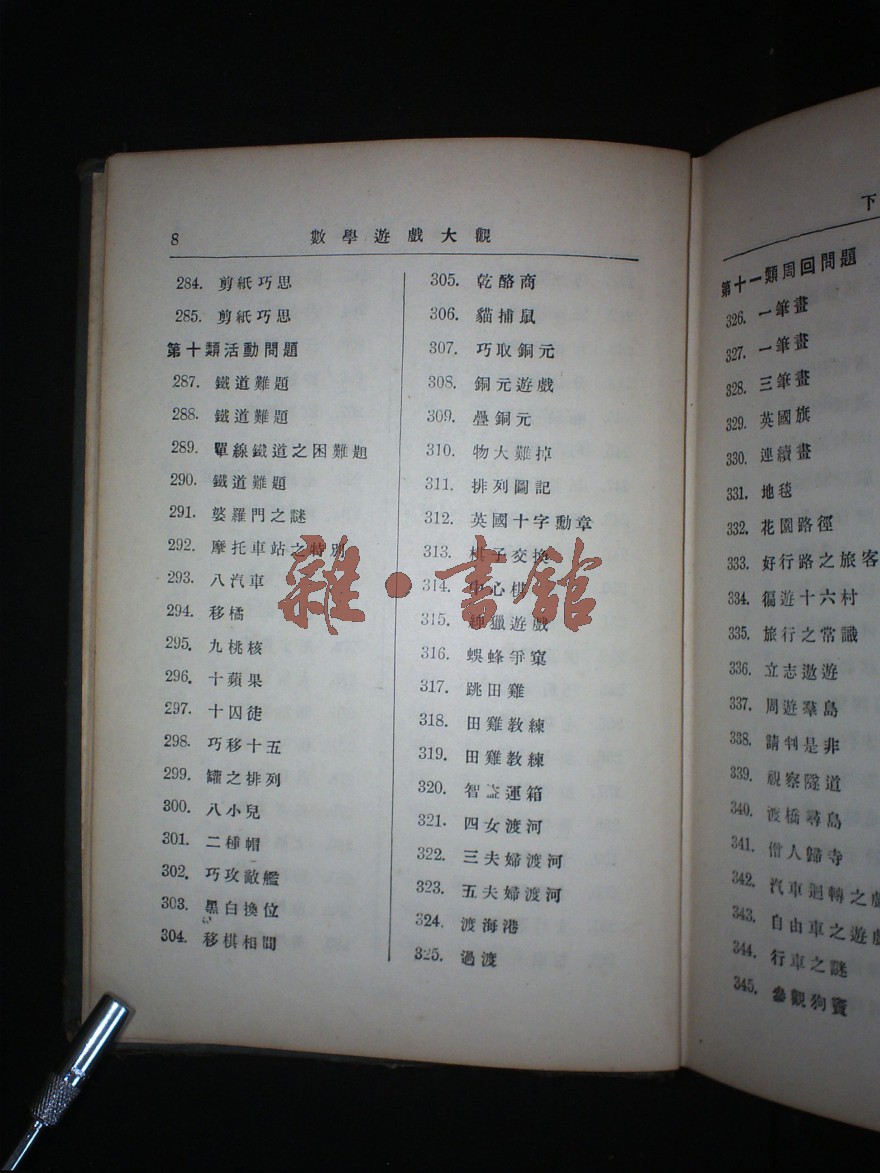 8 數學遊戲大觀
284. 剪紙巧思
285. 剪紙巧思
第十類活動問題
287. 鐵道難題
288. 鐵道難題
289. 單線鐵道之困難題
290. 鐵道難題
291. 婆羅門之謎
292. 摩托車站之特別
293. 八汽車
294. 移橘
295. 九桃核
296. 十蘋果
297. 十囚徒
298. 巧移十五
299. 罐之排列
300. 八小兒
301. 二種帽
302. 巧攻敵艦
303. 黑白換位
304. 移棋相間
305. 乾酪商
306. 貓捕鼠
307. 巧取銅元
308. 銅元遊戲
309. 疊銅元
310. 物大難掉
311. 排列圖記
312. 英國十字勳章
313. 棋子交換
314. 中心棋
315. 狎獵遊戲
316. 蜈蜂爭窠
317. 跳田雞
318. 田雞教練
319. 田雞教練
320. 智盜運箱
321. 四女渡河
322. 三夫婦渡河
323. 五夫婦渡河
324. 渡海港
325. 過渡
雜·書館
下
第十一類周回問題
326. 一筆畫
327. 一筆畫
328. 三筆畫
329. 英國旗
330. 連續畫
331. 地毯
332. 花園路徑
333. 好行路之旅客
334. 徧遊十六村
335. 旅行之常識
336. 立志遨遊
337. 周遊羣島
338. 請判是非
339. 視察隧道
340. 渡橋尋島
341. 僧人歸寺
342. 汽車迴轉之戲
343. 自由車之遊戲
344. 行車之謎
345. 參觀狗竇